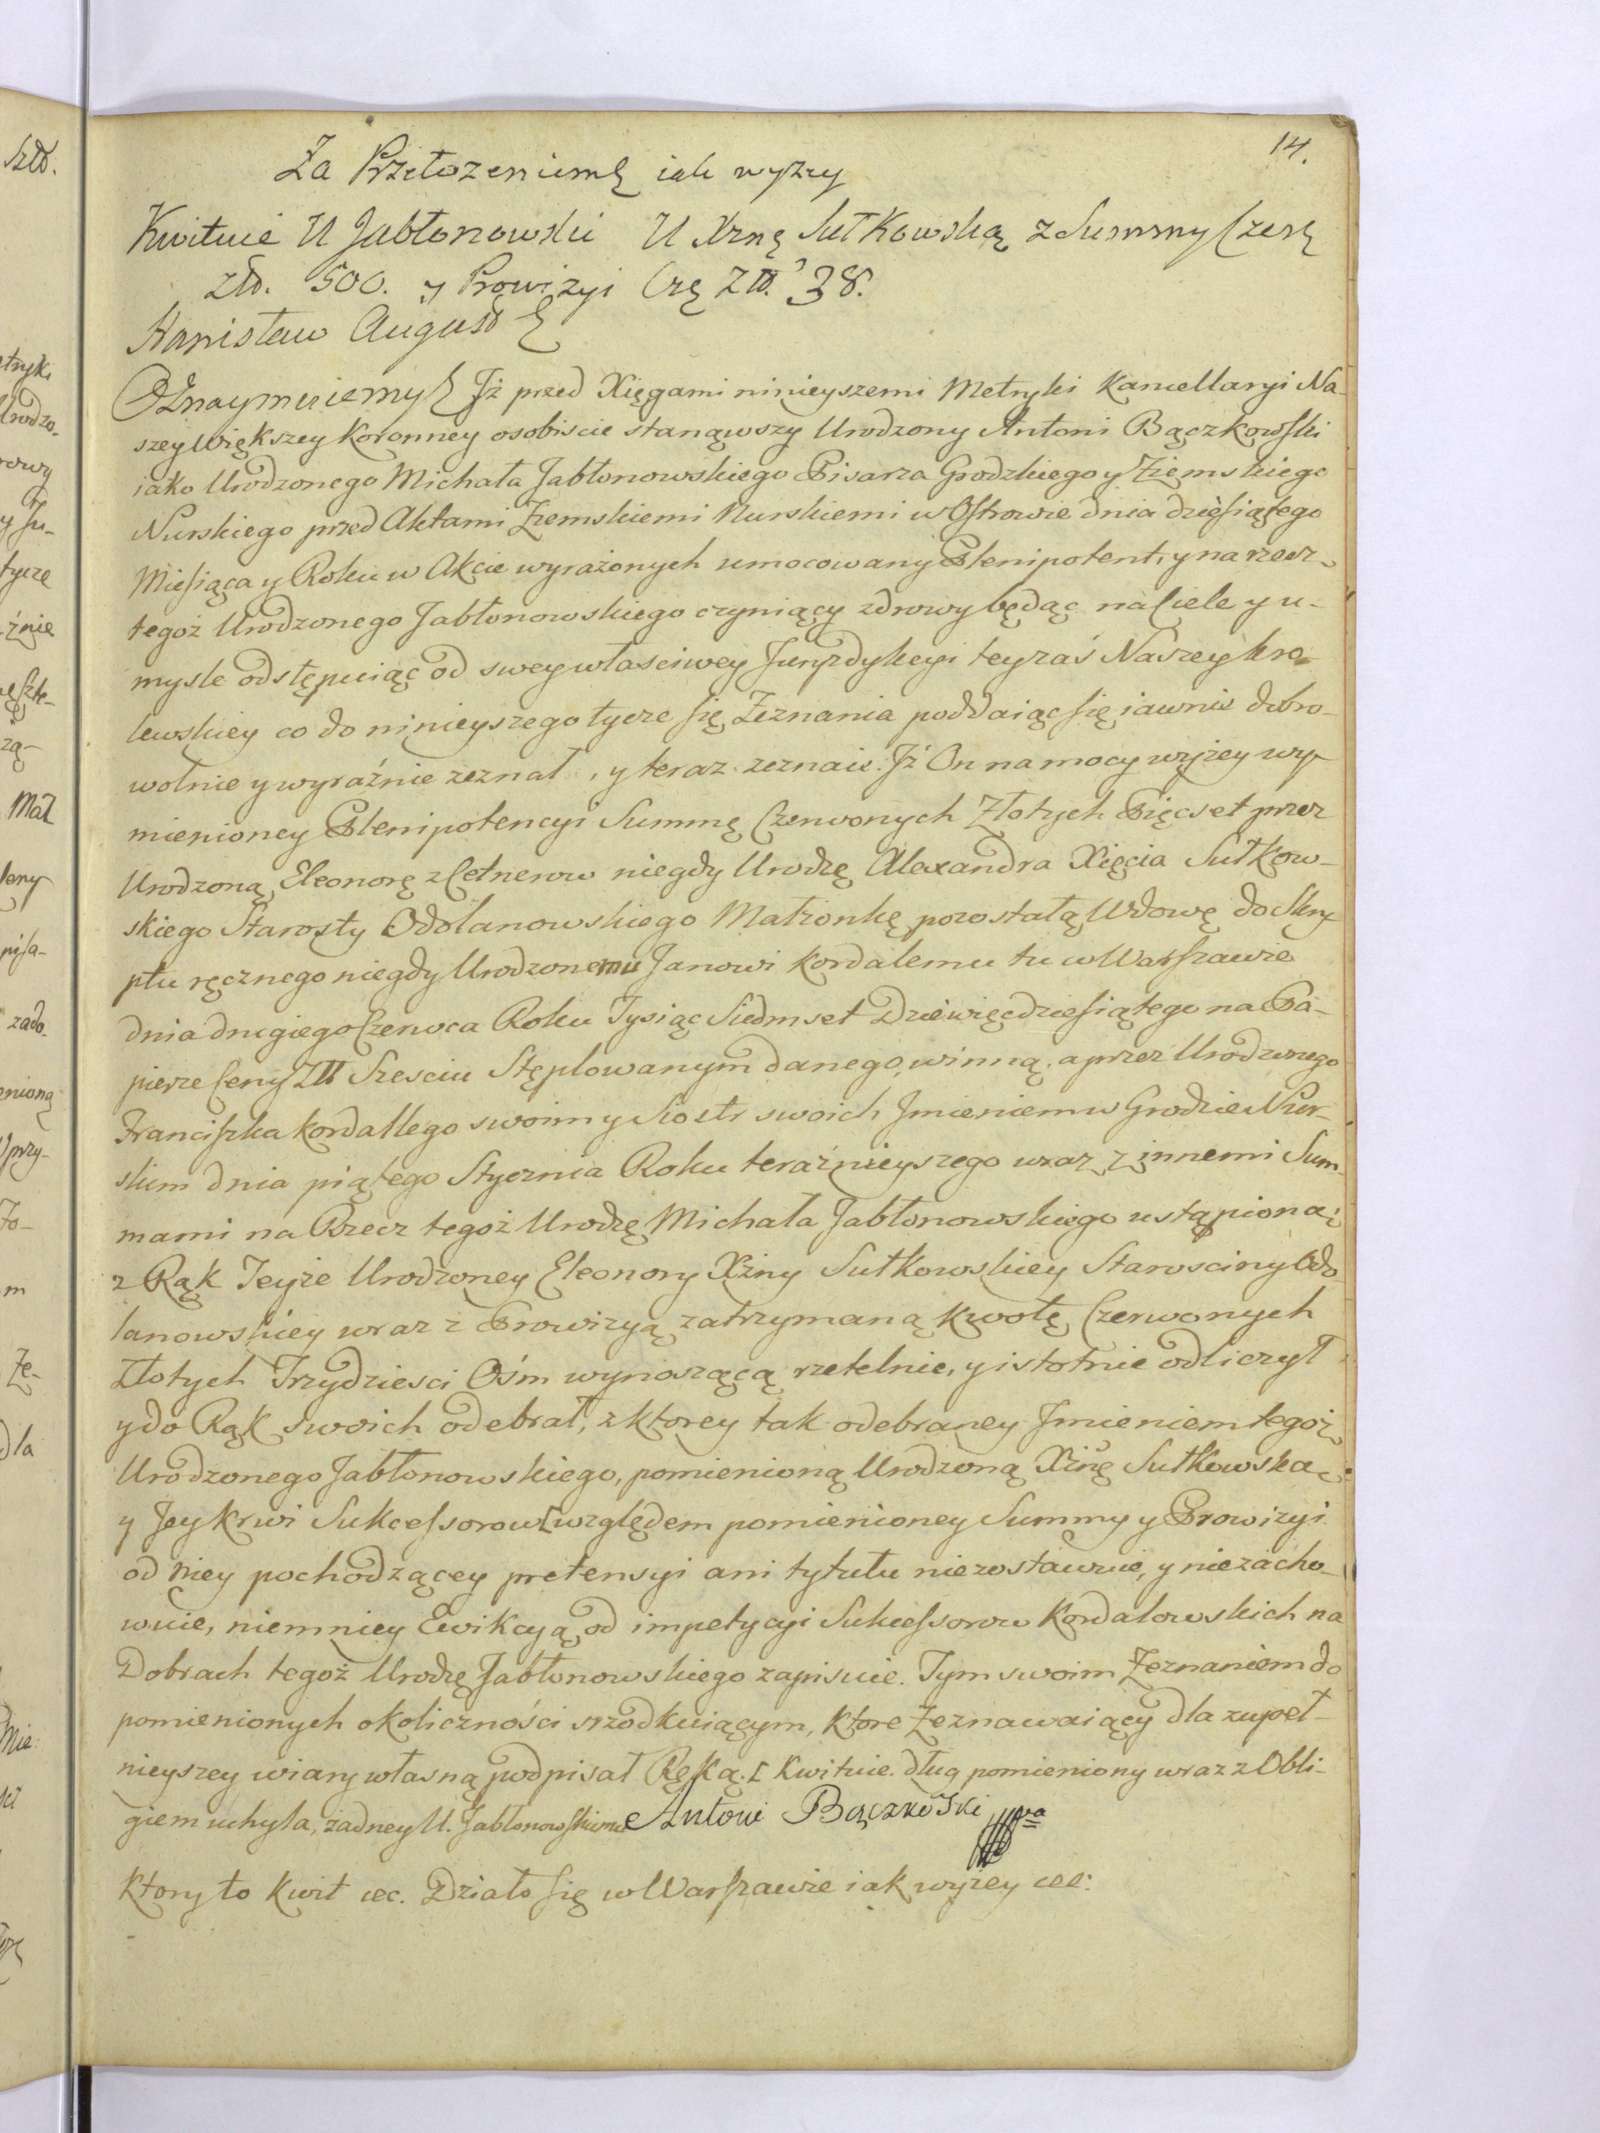 14.
Za Przełożeniem iak wyżey
Kwituie U Jabłonowski U Xżnę Sułkowską z Summy Czerę
Złt. 500. y Prowizyi Czę Złt. 38.
Stanisław August
Oznaymuiemy Jż przed Xięgami ninieyszemi Metryki Kancellaryi Na-
szey Większey Koronney osobiscie stanąwszy Urodzony Antoni Bączkowski
iako Urodzonego Michała Jabłonowskiego Pisarza Grodzkiego y Ziemskiego
Nurskiego przed Aktami Ziemskiemi Nurskiemi w Ostrowie dnia dziesiątego
Miesiąca y Roku w Akcie wyrażonych umocowany Plenipotent, y na rzecz
tegoż Urodzonego Jabłonowskiego czyniący zdrowy będąc na Ciele y u-
mysle odstępuiąc od swey własciwey Juryzdykcyi teyzaś Naszey kro-
lewskiey co do ninieyszego tycze się Zeznania poddaiąc się iawnie dobro-
wolnie y wyraźnie zeznał, y teraz zeznaie. Jż On na mocy wyżey wy-
mienioney Plenipotencyi Summę Czerwonych Złotych Pięcset przez
Urodzoną Eleonorę z Cetnerow niegdy Urodzę Alexandra Xięcia Sułkow-
skiego Starosty Odolanowskiego Małżonkę pozostałą Wdowę do Skry-
ptu ręcznego niegdy Urodzonemu Janowi Kordalemu tu w Warszawie
dnia drugiego Czerwca Roku Tysiąc Siedmset Dziewięcdziesiątego na Pa-
pierze Ceny Złt Szesciu Stęplowanym danego, winną, a przez Urodzonego
Franciszka Kordallego swoim y Siostr swoich Jmieniem w Grodzie Nur-
skim dnia piątego Stycznia Roku teraźnieyszego wraz z innemi Sum-
mami na Rzecz tegoż Urodzę Michała Jabłonowskiego ustąpioną
z Rąk Teyże Urodzoney Eleonory Xżny Sułkowskiey Starosciny Odo-
lanowskiey wraz z Prowizyą zatrzymaną kwotę Czerwonych
Złotych Trzydziesci Ośm wynoszącą rzetelnie, y istotnie odliczył
y do Rąk swoich odebrał, z ktorey tak odebraney Jmieniem tegoż
Urodzonego Jabłonowskiego, pomienioną Urodzoną Xżnę Sułkowską
y Jey krwi Sukcessorow [względem pomienioney Summy y Prowizyi
od niey pochodzącey pretensyi ani tytułu niezostawuie, y niezacho-
wuie, niemniey Ewikcyą od impetycyi Sukcessorow Kordalowskich na
Dobrach tegoż Urodzę Jabłonowskiego zapisuie. Tym swoim Zeznaniem do
pomienionych okoliczności srzodkuiącym, ktore Zeznawaiący dla zupeł-
nieyszey wiary własną podpisał Ręką. [Kwituie. dług pomieniony wraz z Obli-
giem uchyla, żadney U. Jabłonowskiemu Antoni Bączkowski
Ktory to Kwit etc. Działo się w Warszawie iak wyżey etc: